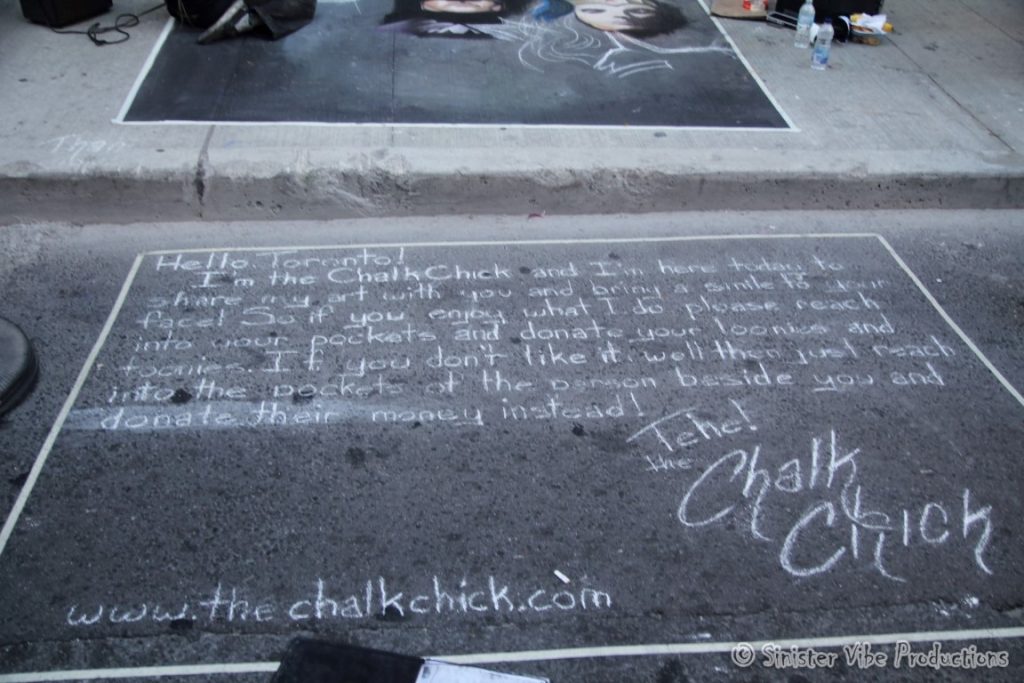 Hello Toronto!
I'm the ChalkChick and I'm here today to
share my art with you and bring a smile to your
face! So if you enjoy what I do please reach
into your pockets and donate your loonies and
toonies. If you don't like it well then just reach
into the pockets of the person beside you and
donate their money instead!
Tehe!
the Chalk
Chick
www.thechalkchick.com
© Sinister Vibe Productions